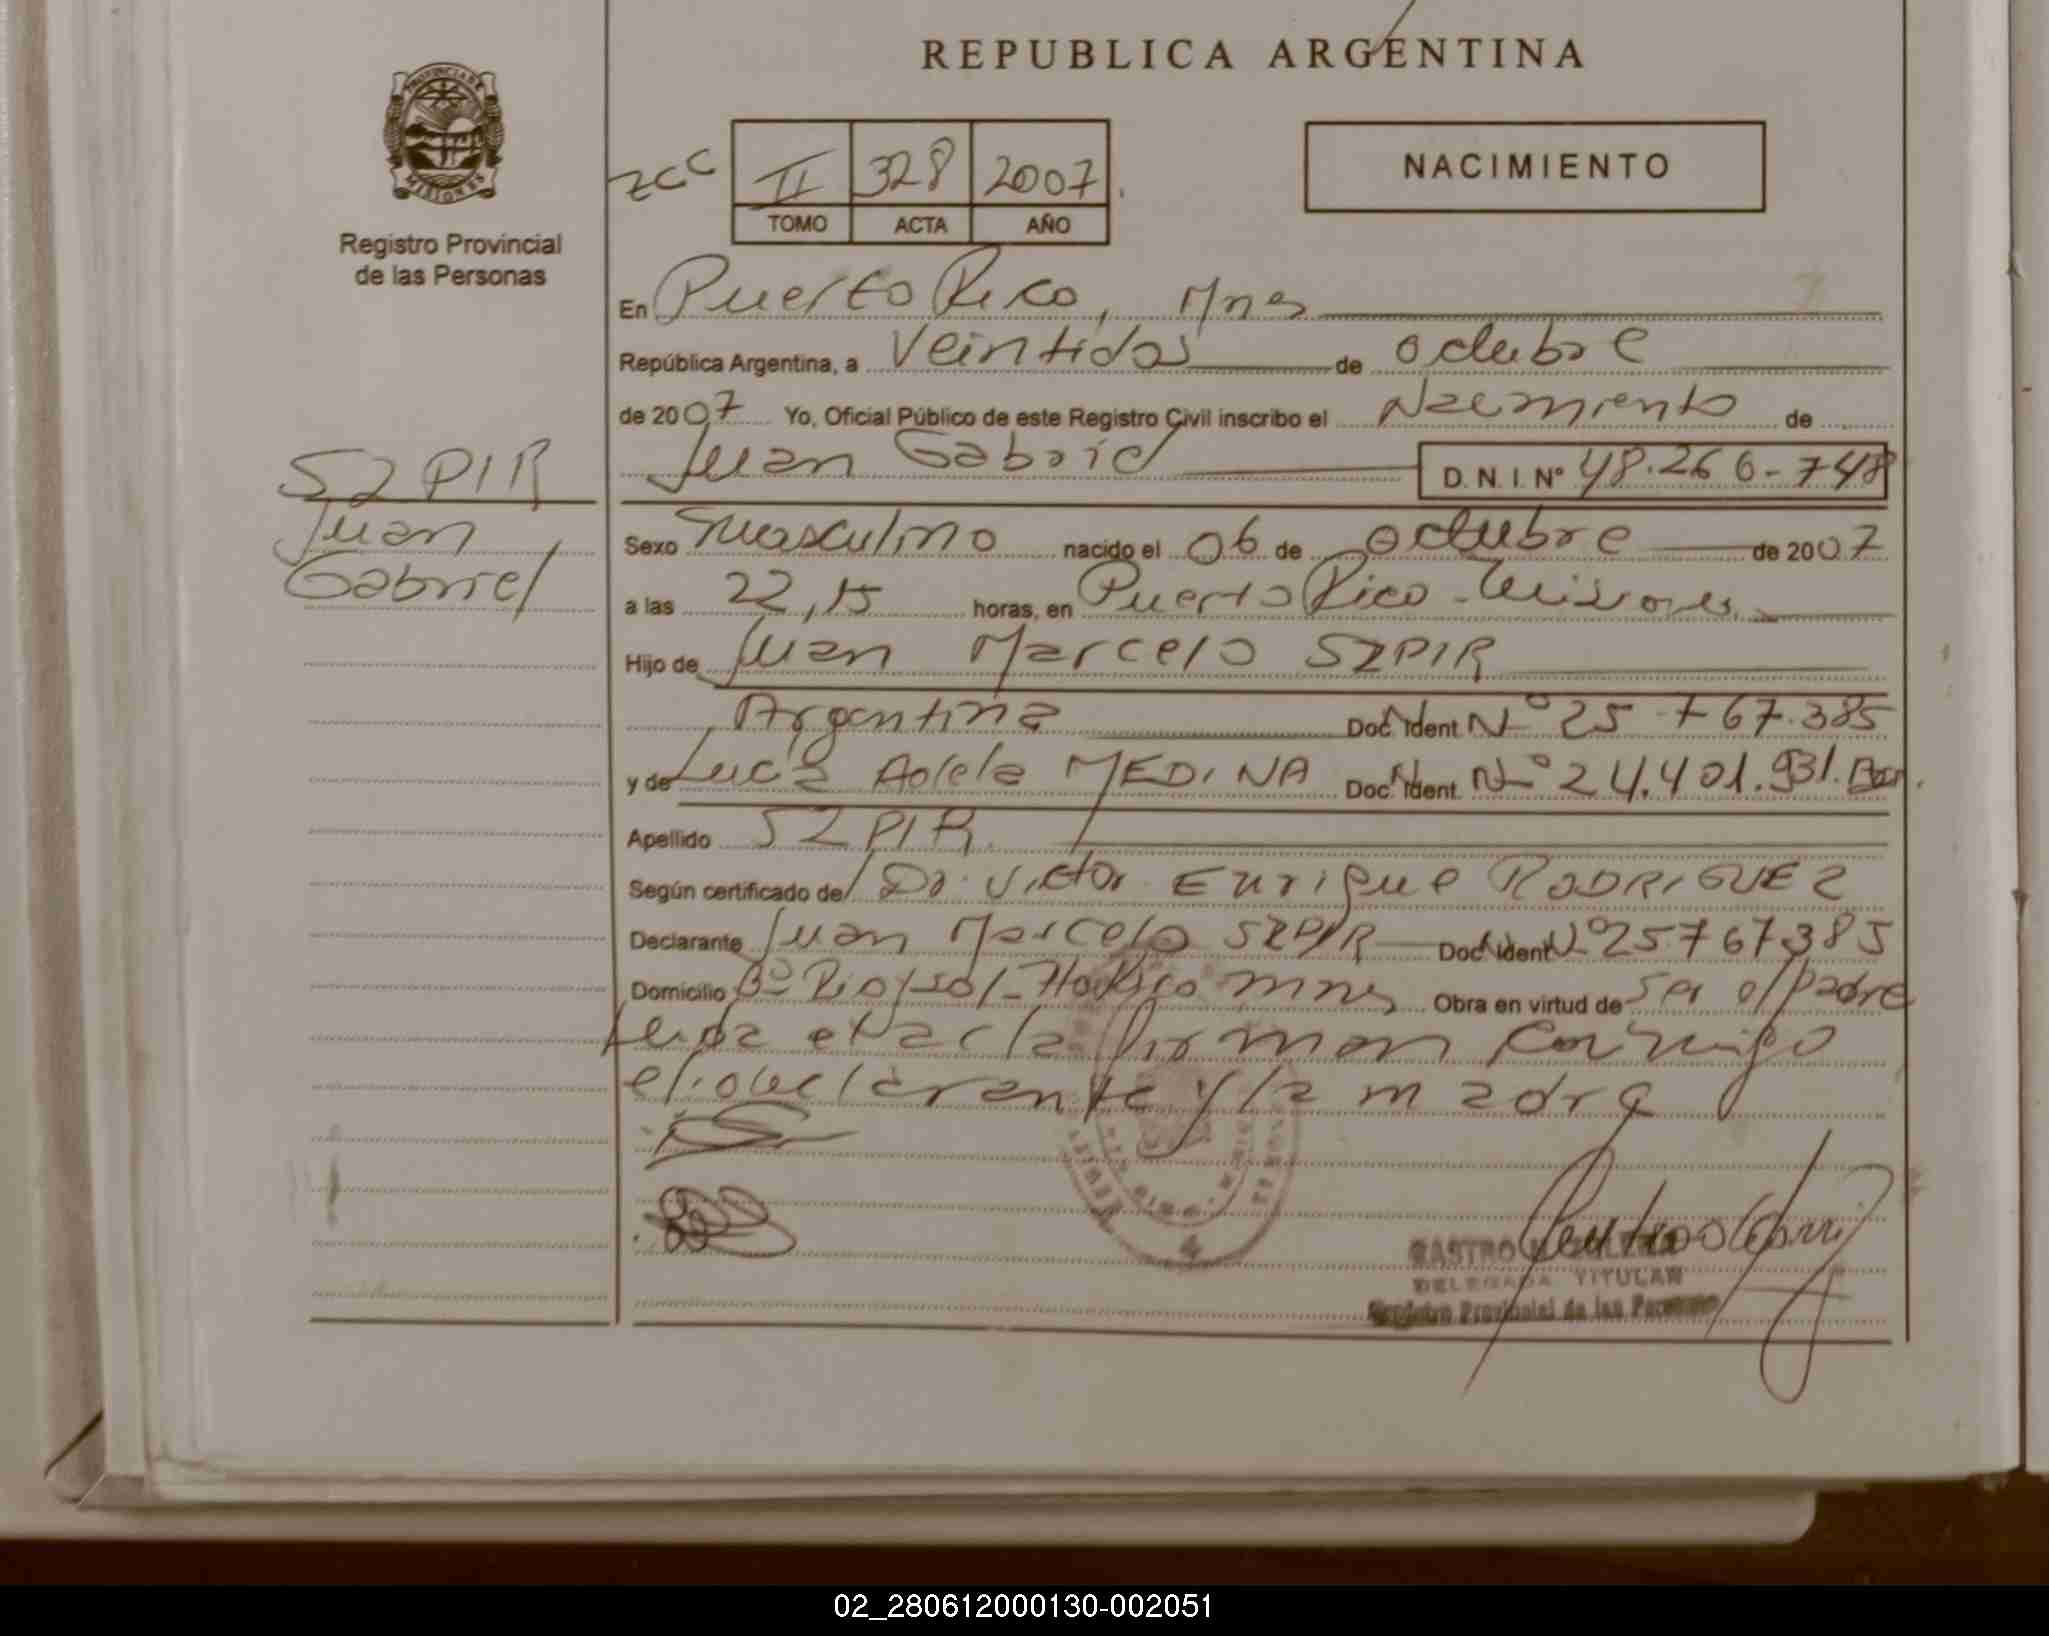 REPUBLICA ARGENTINA
PROVINCIA DE
MISIONES
Registro Provincial
de las Personas
II 328 2007
TOMO ACTA AÑO
NACIMIENTO
En Puerto Rico, Mnes
República Argentina, a Veintidos de octubre
de 2007 Yo, Oficial Público de este Registro Civil inscribo el Nacimiento de
Juan Gabriel D.N.I. Nº 48.266-748
SZPIR
Juan
Gabriel
Sexo Masculino nacido el 06 de octubre de 2007
a las 22,15 horas, en Puerto Rico - Misiones
Hijo de Juan Marcelo SZPIR
Argentina Doc. Ident. Nº 25.767.385
y de Lucia Adela MEDINA Doc. Ident. Nº 24.401.931.
Apellido SZPIR
Según certificado de Dr. Victor Enrique RODRIGUEZ
Declarante Juan Marcelo SZPIR Doc. Ident. Nº 25.767.385
Domicilio Bº Mnes Obra en virtud de ser el padre
Leida el acta firman conmigo
el declarante y la madre
DELEGADA TITULAR
Registro Provincial de las Personas
02_280612000130-002051